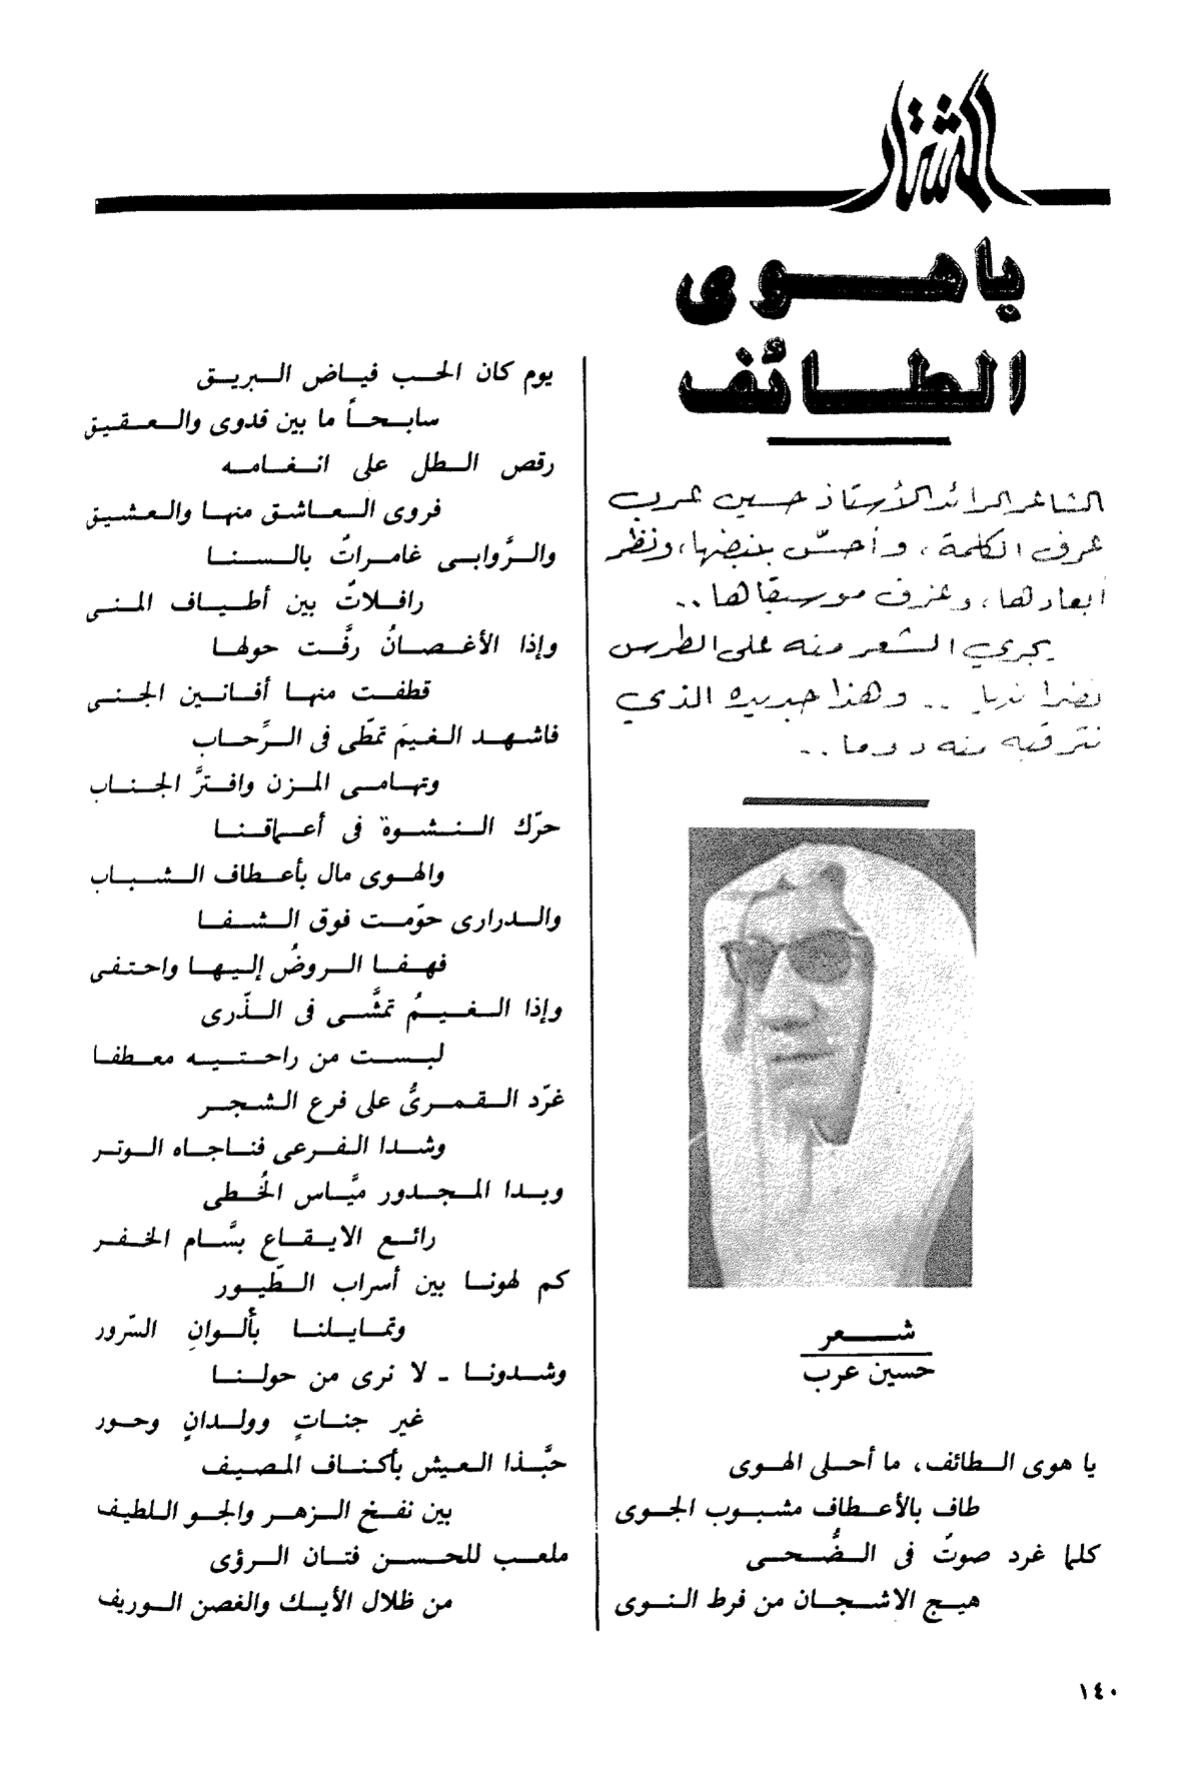 يا هوى
الطائف
الشاعر الرائد الأستاذ حسين عرب
عرف الكلمة، وأحسّ بنبضها، ونظر
أبعادها، وعزف موسيقاها..
يجري الشعر منه على الطرس
نضرا نديا .. وهذا جديده الذي
نترقبه منه دوما..
شعر
حسين عرب
يا هوى الطائف، ما أحلى الهوى
طاف بالأعطاف مشبوب الجوى
كلما غرد صوتٌ فى الضُّحى
هيج الاشجان من فرط النوى
يوم كان الحب فياض البريق
سابحاً ما بين قدوى والعقيق
رقص الطل على انغامه
فروى العاشق منها والعشيق
والرَّوابى غامراتٌ بالسنا
رافلاتٌ بين أطياف المنى
وإذا الأغصانُ رفَّت حولها
قطفت منها أفانين الجنى
فاشهد الغيمَ تمطّى فى الرَّحاب
وتهامى المزن وافترَّ الجناب
حرّك النشوة فى أعماقنا
والهوى مال بأعطاف الشباب
والدرارى حوّمت فوق الشفا
فهفا الروضُ إليها واحتفى
وإذا الغيمُ تمشَّى فى الذّرى
لبست من راحتيه معطفا
غرّد القمرىُّ على فرع الشجر
وشدا الفرعى فناجاه الوتر
وبدا المجدور ميَّاس الخُطى
رائع الايقاع بسَّام الخفر
كم لهونا بين أسراب الطّيور
وتمايلنا بألوانِ السّرور
وشدونا - لا نرى من حولنا
غير جناتٍ وولدانٍ وحور
حبَّذا العيش بأكناف المصيف
بين نفخ الزهر والجو اللطيف
ملعب للحسن فتان الرؤى
من ظلال الأيك والغصن الوريف
١٤٠